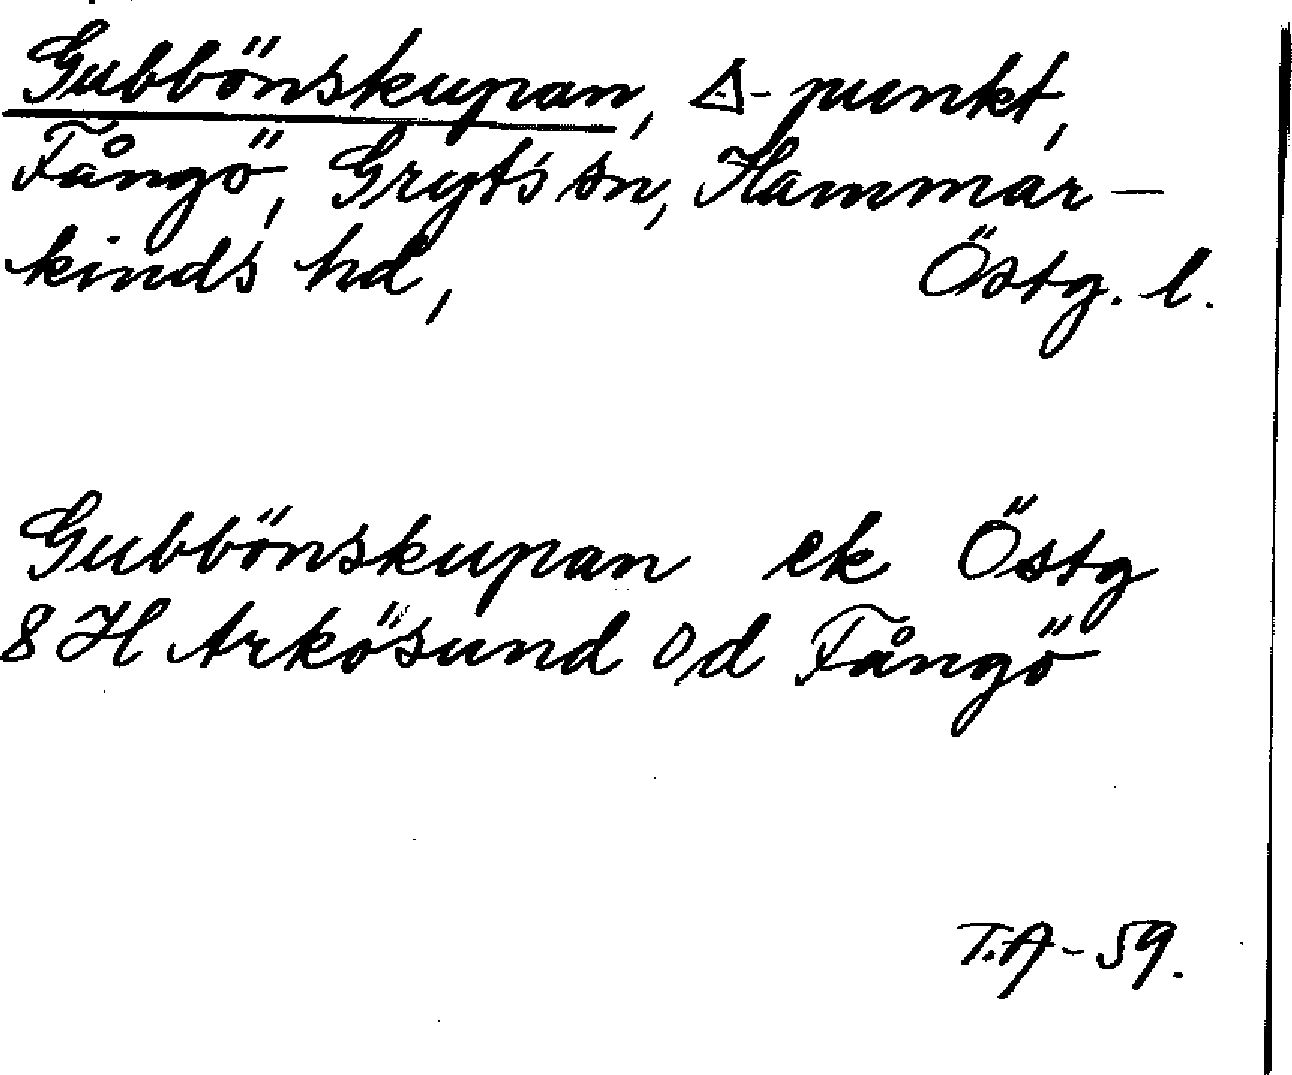 Gubbönskupan, △-punkt,
Fångö, Gryts sn, Hammar-
kinds hd, Östg. l.
Gubbönskupan ek Östg
8 H Arkösund o/d Fångö
T.A-59.